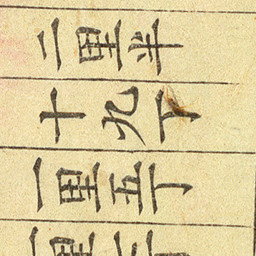 二里半
十九丁
一里五丁
里